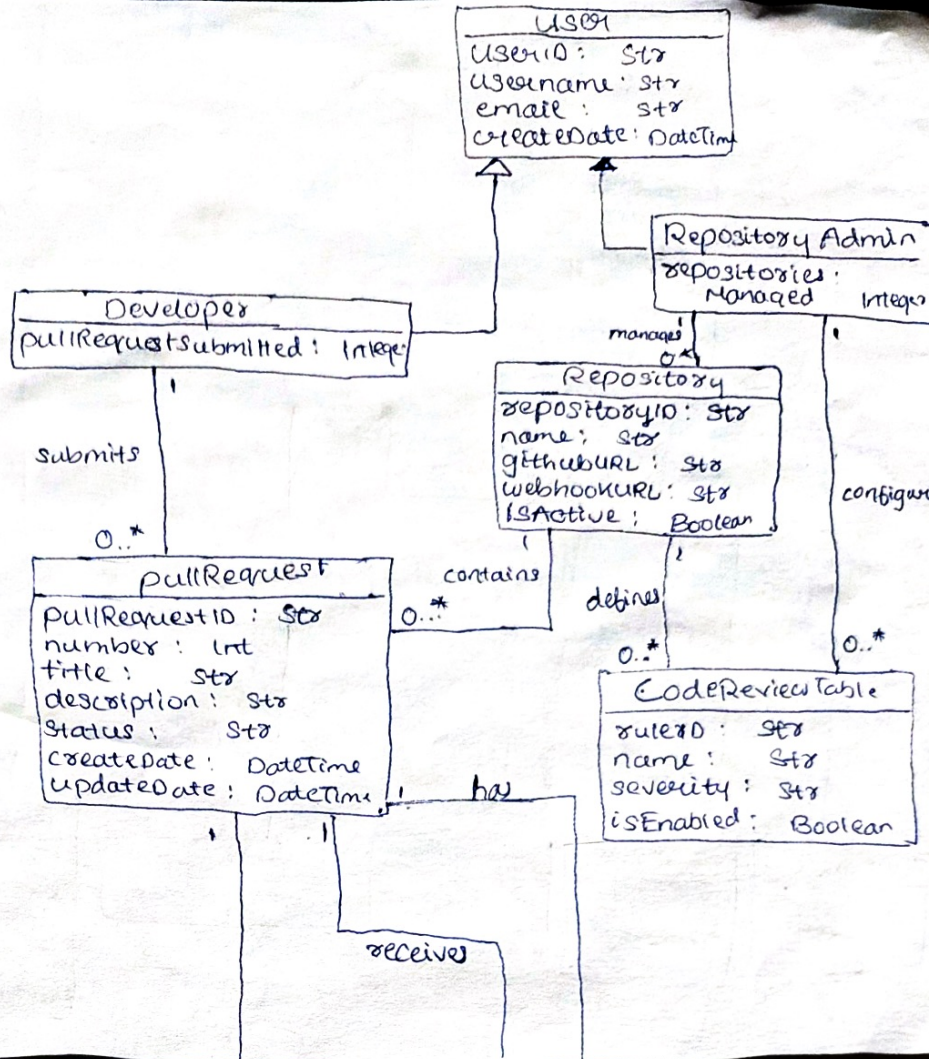 User
UserID: Str
Username: Str
email: Str
createDate: DateTime
Repository Admin
repositories:
Managed Integer
Developer
pullRequestSubmitted: Integer
manages
1
0..*
Repository
repositoryID: Str
name: Str
githubURL: Str
webhookURL: Str
isActive: Boolean
1
1
submits
0..*
1
configure
pullRequest
pullRequestID: Str
number: Int
title: Str
description: Str
Status: Str
createDate: DateTime
updateDate: DateTime
1
contains
0..*
1
defines
0..*
0..*
CodeReviewTable
ruleID: Str
name: Str
severity: Str
isEnabled: Boolean
1
has
1
1
receives